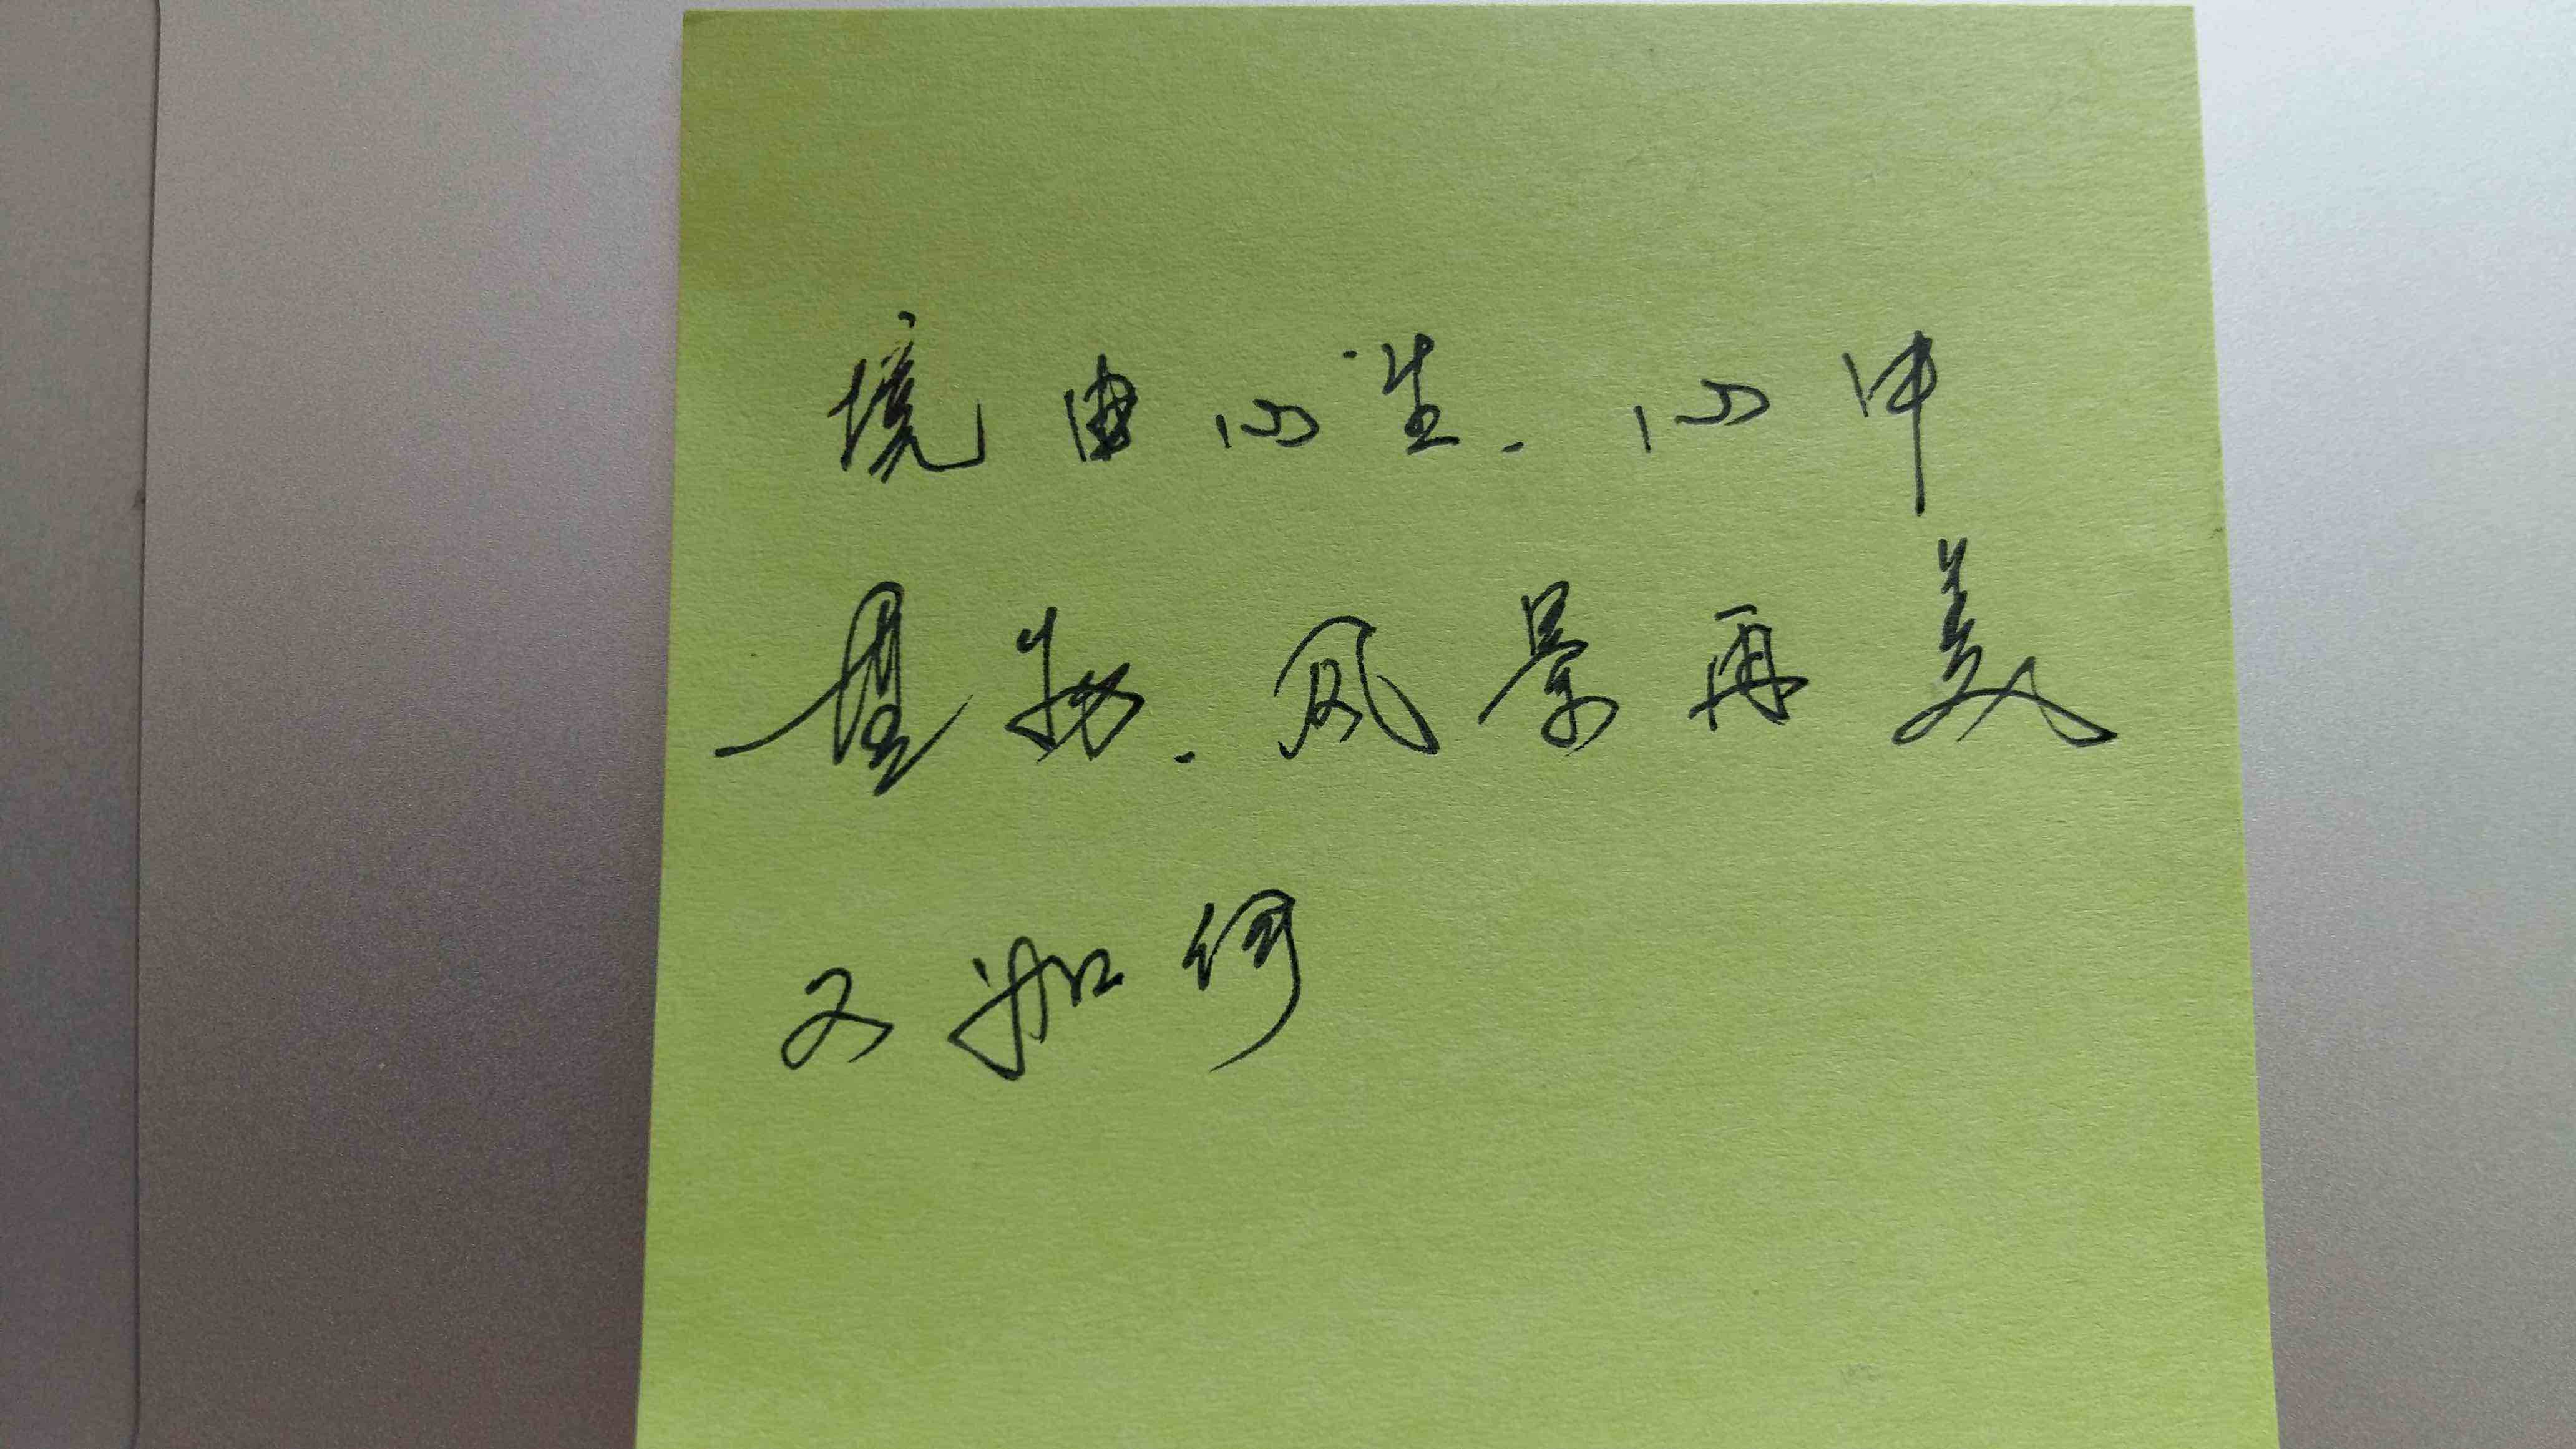 境由心生.心中
量物.风景再美
又如何